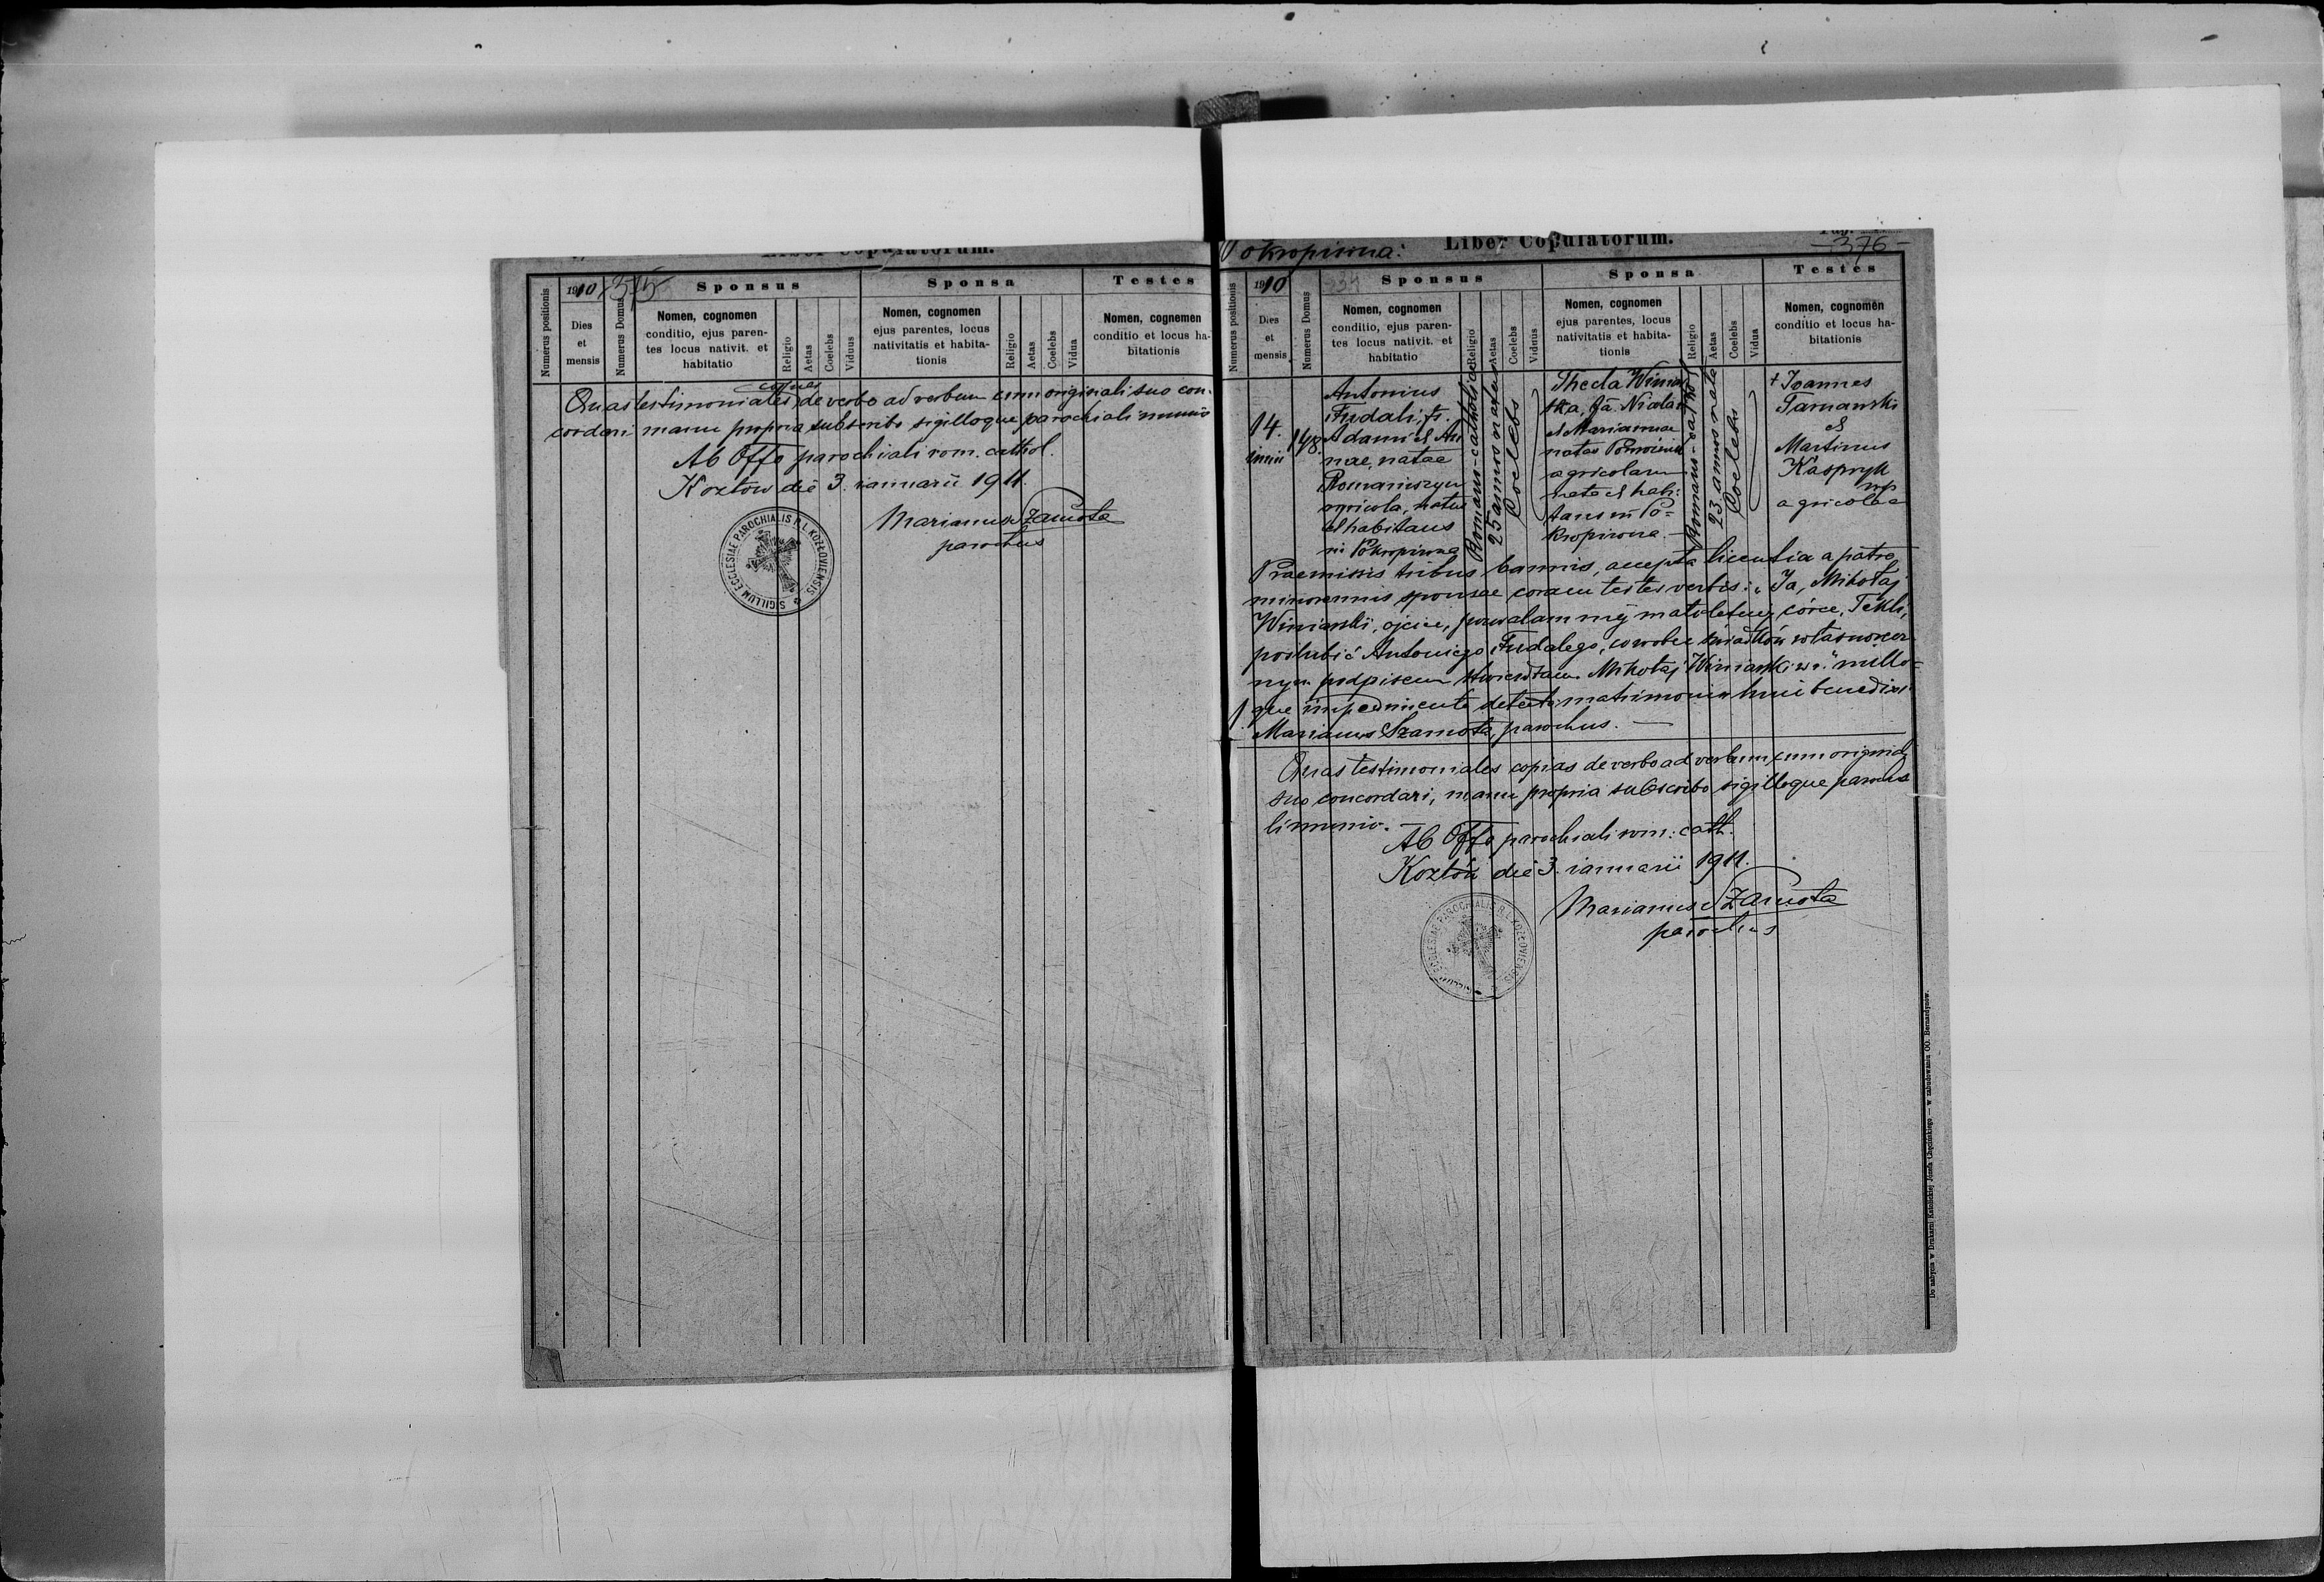 Liber Copulatorum.
1910
375
Sponsus
Sponsa
Testes
Numerus positionis
Dies
et
mensis
Numerus Domus
Nomen, cognomen
conditio, ejus paren-
tes locus nativit. et
habitatio
Religio
Aetas
Coelebs
Viduus
Nomen, cognomen
ejus parentes, locus
nativitatis et habita-
tionis
Religio
Aetas
Coelebs
Vidua
Nomen, cognemen
conditio et locus ha-
bitationis
copias
Quas testimoniales de verbo ad verbum cum originali suo con-
cordari manu propria subscribo sigilloque parochiali munio
Ab Offo parochiali rom. cathol.
Kozłów die 3. ianuarii 1911.
Marianus Szamota
parochus
SIGILLUM ECCLESIAE PAROCHIALIS R. L. KOZŁOVIENSIS
Pokropiwna:
Liber Copulatorum.
Pag.
-376-
1910
234
Sponsus
Sponsa
Testes
Numerus positionis
Dies
et
mensis
Numerus Domus
Nomen, cognomen
conditio, ejus paren-
tes locus nativit. et
habitatio
Religio
Aetas
Coelebs
Viduus
Nomen, cognomen
ejus parentes, locus
nativitatis et habita-
tionis
Religio
Aetas
Coelebs
Vidua
Nomen, cognomen
conditio et locus ha-
bitationis
14.
iunii
148.
Antonius
Fudali, fs.
Adami et An
nae, natae
Romaniszyn
agricola, natus
et habitans
in Pokropiwna
Romano-catholicae
25 annos natus
Coelebs
Thecla Winiar
ska, fa. Nicolai
et Mariannae
natae
agricolarum
nata et habi-
tans in Po-
kropiwna.
Romano-cathol
23 annos nata
Coelebs
+ Joannes
Tarnawski
et
Martinus
Kaspryk
mp
agricolae
Praemissis tribus bannis, accepta licentia a patre
minorennis sponsae coram testes verbis: „Ja, Mikołaj
Winiarski, ojciec, pozwalam mej małoletniej córce, Tekli,
poślubić Antoniego Fudalego, co wobec świadków własnoręcz
nym podpisem stwierdzam. Mikołaj Winiarski wr." nullo-
1. que impedimento detecto matrimonium huic benedixi
Marianus Szamota, parochus.
Quas testimoniales copias de verbo ad verbum cum originali
suo concordari, manu propria subscribo sigilloque parochia
li munio.
Ab Offo parochiali rom: cath.
Kozłów die 3. ianuarii 1911.
Marianus Szamota
parochus
SIGILLUM ECCLESIAE PAROCHIALIS R. L. KOZŁOVIENSIS
Do nabycia w Drukarni Katolickiej Józefa Chęcińskiego — w zabudowaniu OO. Bernardynów.